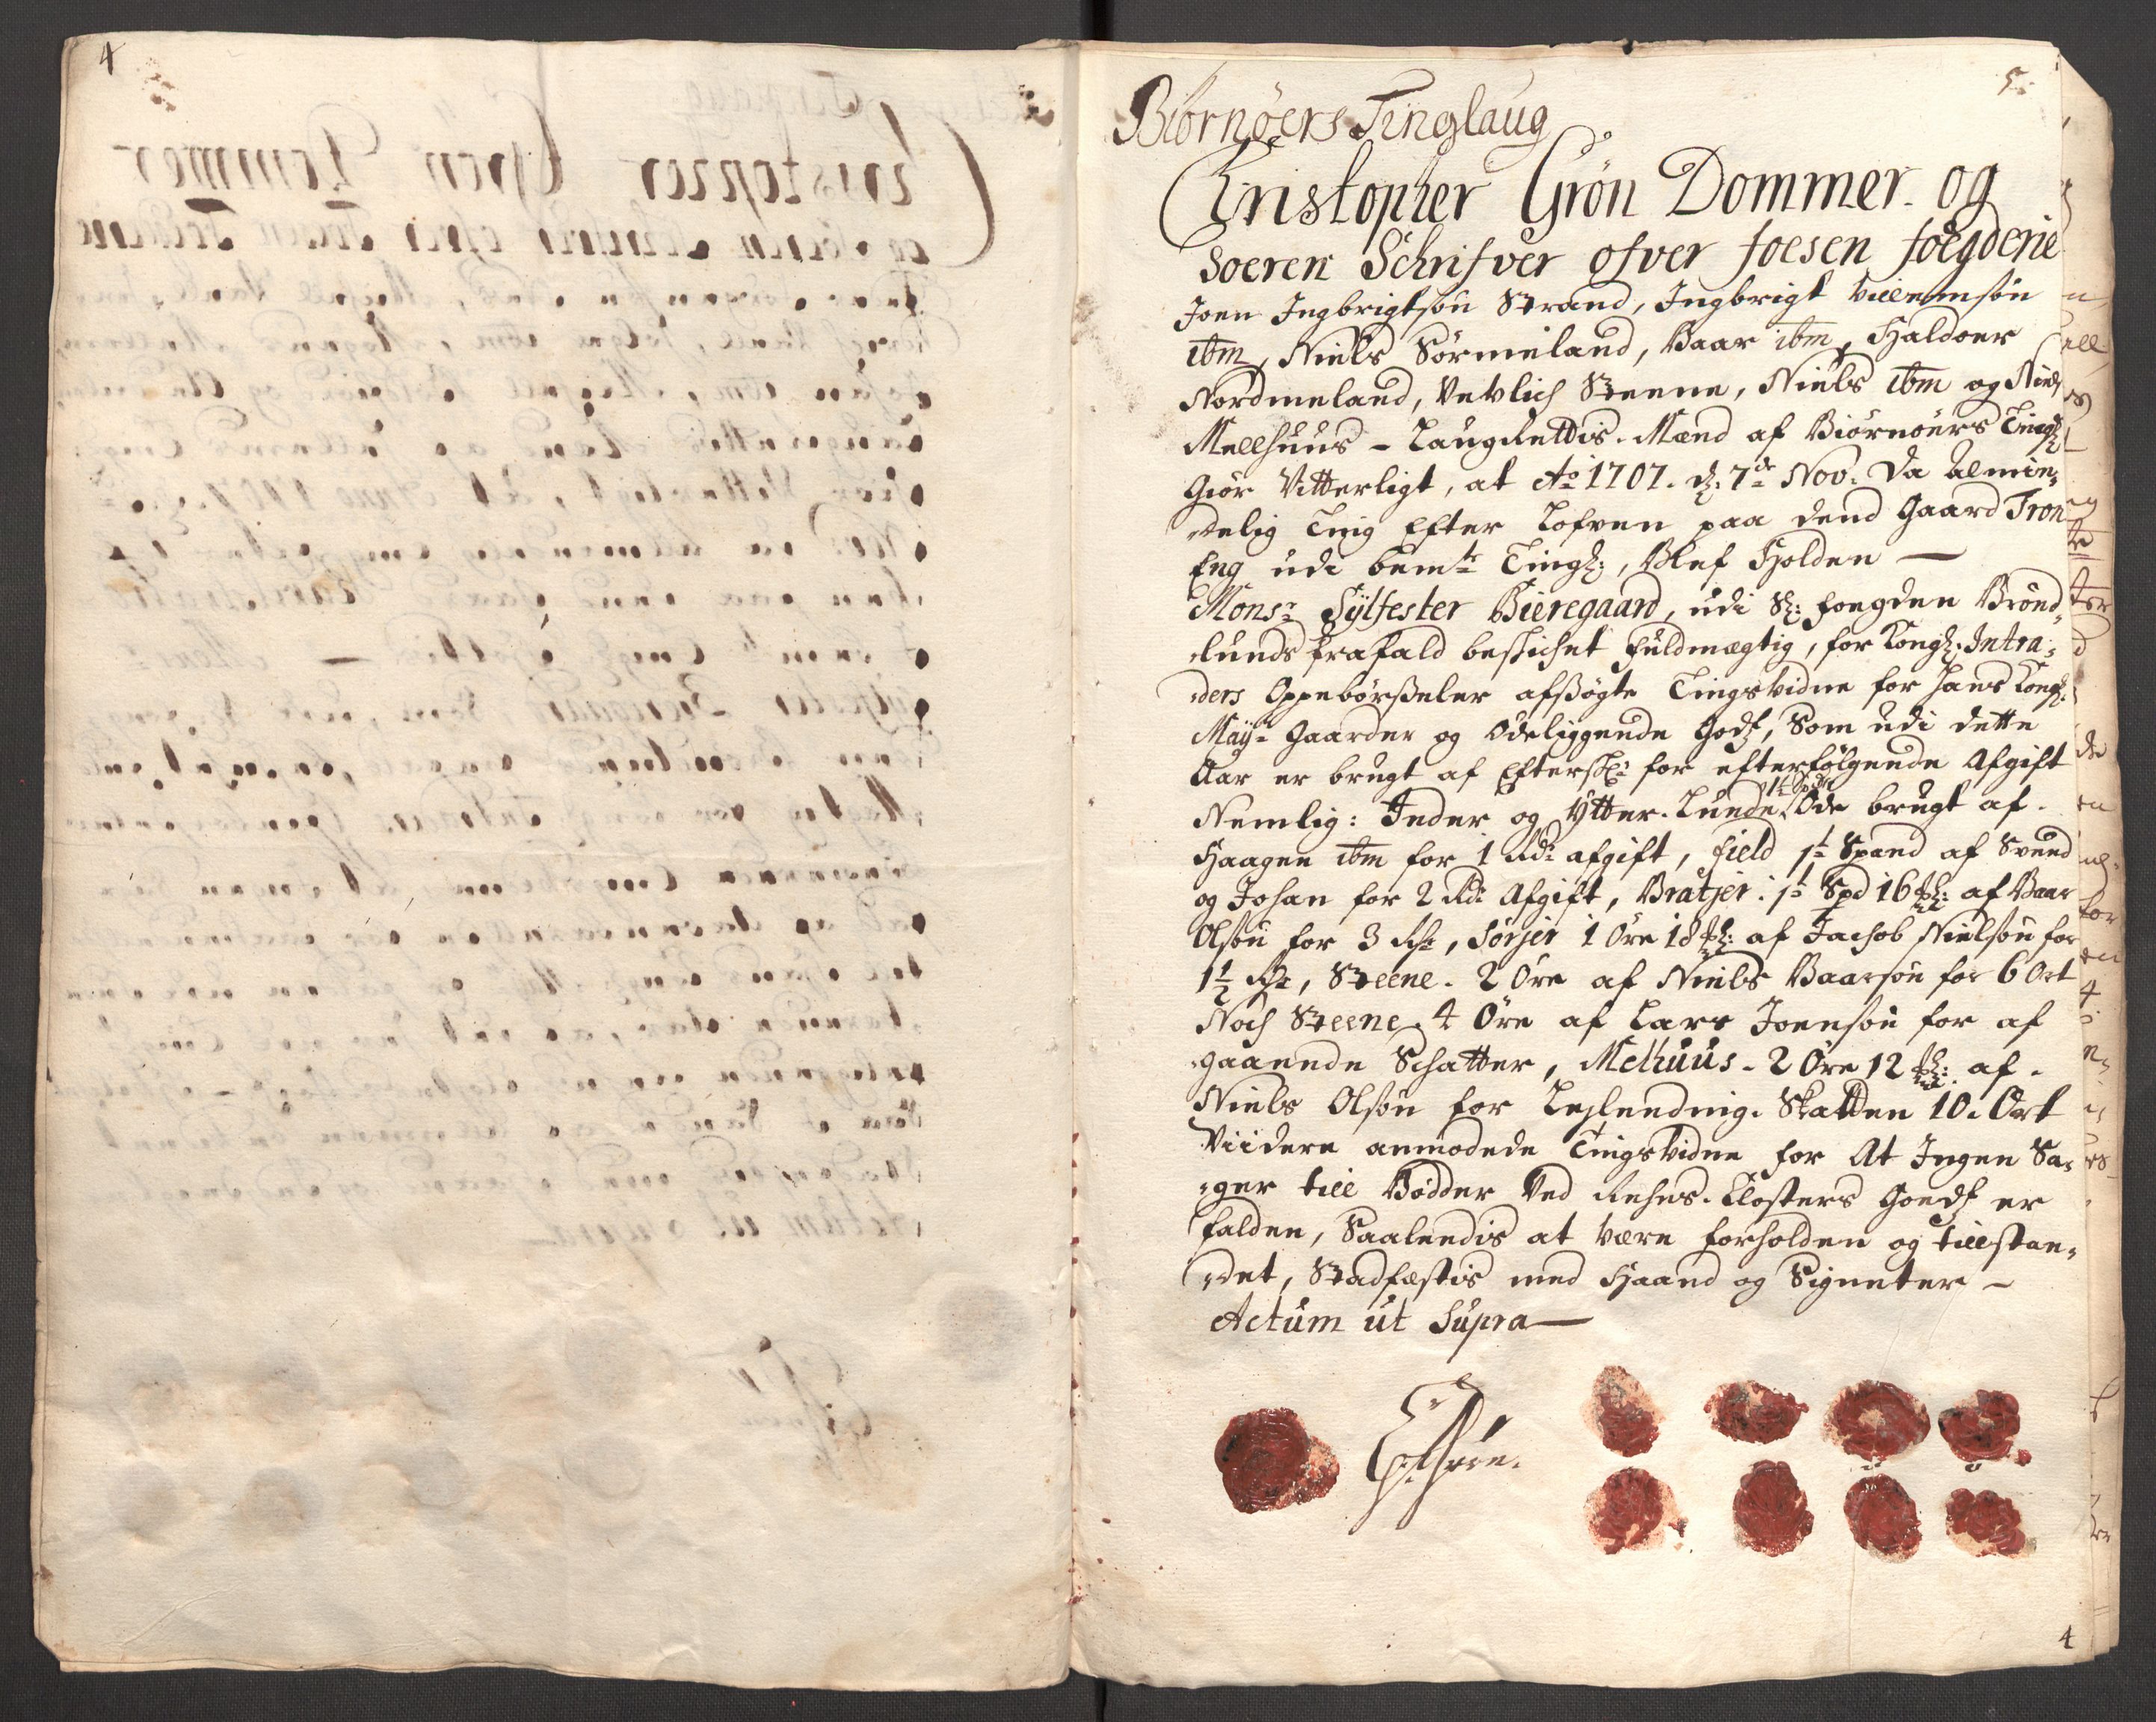 4
5.
Biörnöers Tinglaug
Christopher Grön Dommer og
Soeren Schrifver ofver foesen foegderie
Joen Ingbrigtsön Strand, Ingbrigt Villemsön
ibm, Niels Sörmeland, Baar ibm, Haldoer
Nordmeland, Vetlich Steene, Niels ibm og Niels
Mellhuus - Laugrettis Mænd af Biörnöers Tingl:
Giör Vitterligt, at Ao 1707. d: 7de Nov: Da Almin,
delig Ting Efter Lofven paa dend Gaard Tron
Eng udi bemte Tingl:, Blef Holden —
Monsr Sylfester Bieregaard, udi Sl: foegden Brönd,
lunds frafald beskichet fuldmægtig, for Kongl: Intra,
ders Oppebörßeler afßögte Tingsvidne for hans Kongl:
Mayts Gaarder og Ödeliggende Godz, Som udi dette
Aar er brugt af Efterskr: for efterfölgende Afgift
Nemlig: Inder og Ytter Lunde 1½ spd Öde brugt af
Haagen ibm for 1 Rdr afgift, field 1½ Spand af Svend
og Johan for 2 Rdr Afgift, Bratjer 1½ Spd 16 mkl: af Baar
Olsön for 3 Rdr, Sörjer 1 Öre 18 mkl: af Jachob Nielsön for
1½ Rdr, Steene 2 Öre af Niels Baarsön for 6 Ort
Noch Steene 4 Öre af Lars Joensön for af
gaaende Schatter, Melhuus 2 Öre 12 mkl: af
Niels Olsön for Leylending Skatten 10 Ort
Viidere anmodede Tingsvidne for At Ingen Sa,
ger till Bödder Ved Rehns Closters Goedz er
falden, Saaledis at være forholden og tillstan,
det, Stadfæstis med Haand og Signeter -
Actum ut Supra —
CGrön.
4